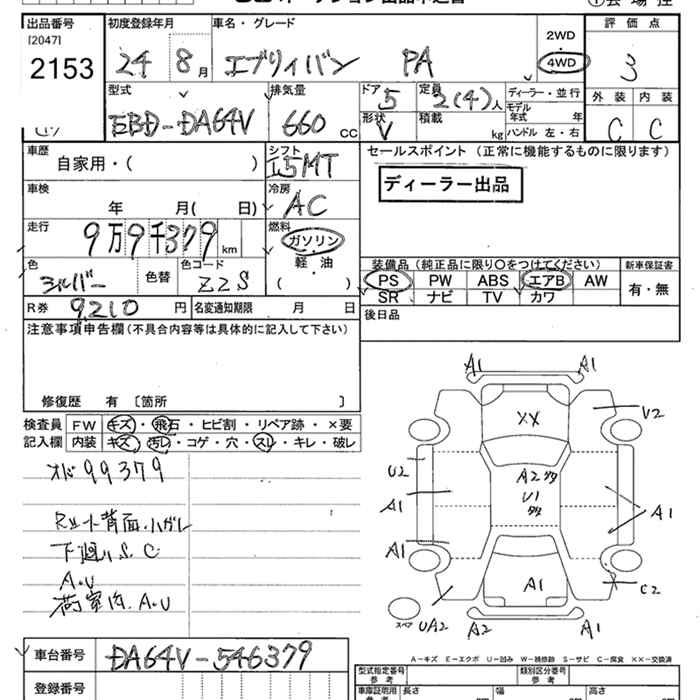 出品番号 初度登録年月 車名・グレード 2WD 評価点
[2047]
2153 24 8月 エブリィバン PA 4WD 3
型式 排気量 ドア 定員 ディーラー・並行 外装 内装
EBD-DA64V 660 CC 5 2(4)人 モデル年式 年
形状 V 積載 kg ハンドル 左・右 C C
車歴 シフト セールスポイント (正常に機能するものに限ります)
自家用・( ) 5MT
車検 冷房 ディーラー出品
年 月( 日) AC
走行 燃料
9万9千379 km ガソリン
軽・油
( )
色 シルバー 色替 色コード ZZS
装備品 (純正品に限り○をつけてください) 新車保証書
PS PW ABS エアB AW 有・無
SR ナビ TV カワ
R券 9210 円 名変通知期限 月 日 後日品
注意事項申告欄 (不具合内容等は具体的に記入して下さい)
修復歴 有 〔箇所 〕
検査員 FW キズ・飛石・ヒビ割・リペア跡・×要
記入欄 内装 キズ・汚レ・コゲ・穴・スレ・キレ・破レ
オド 99379
下廻り S.C
A.U
荷室内 A.U
A1 A1
XX V2
U2 A2
A1 U1 A1
A1
A1 C2
スペア UA2 A2 A1
A-キズ E-エクボ U-凹み W-補修跡 S-サビ C-腐食 XX-交換済
車台番号 DA64V-546379
登録番号
型式指定番号 参考 類別区分番号 参考
車庫証明用 長さ 幅 高さ